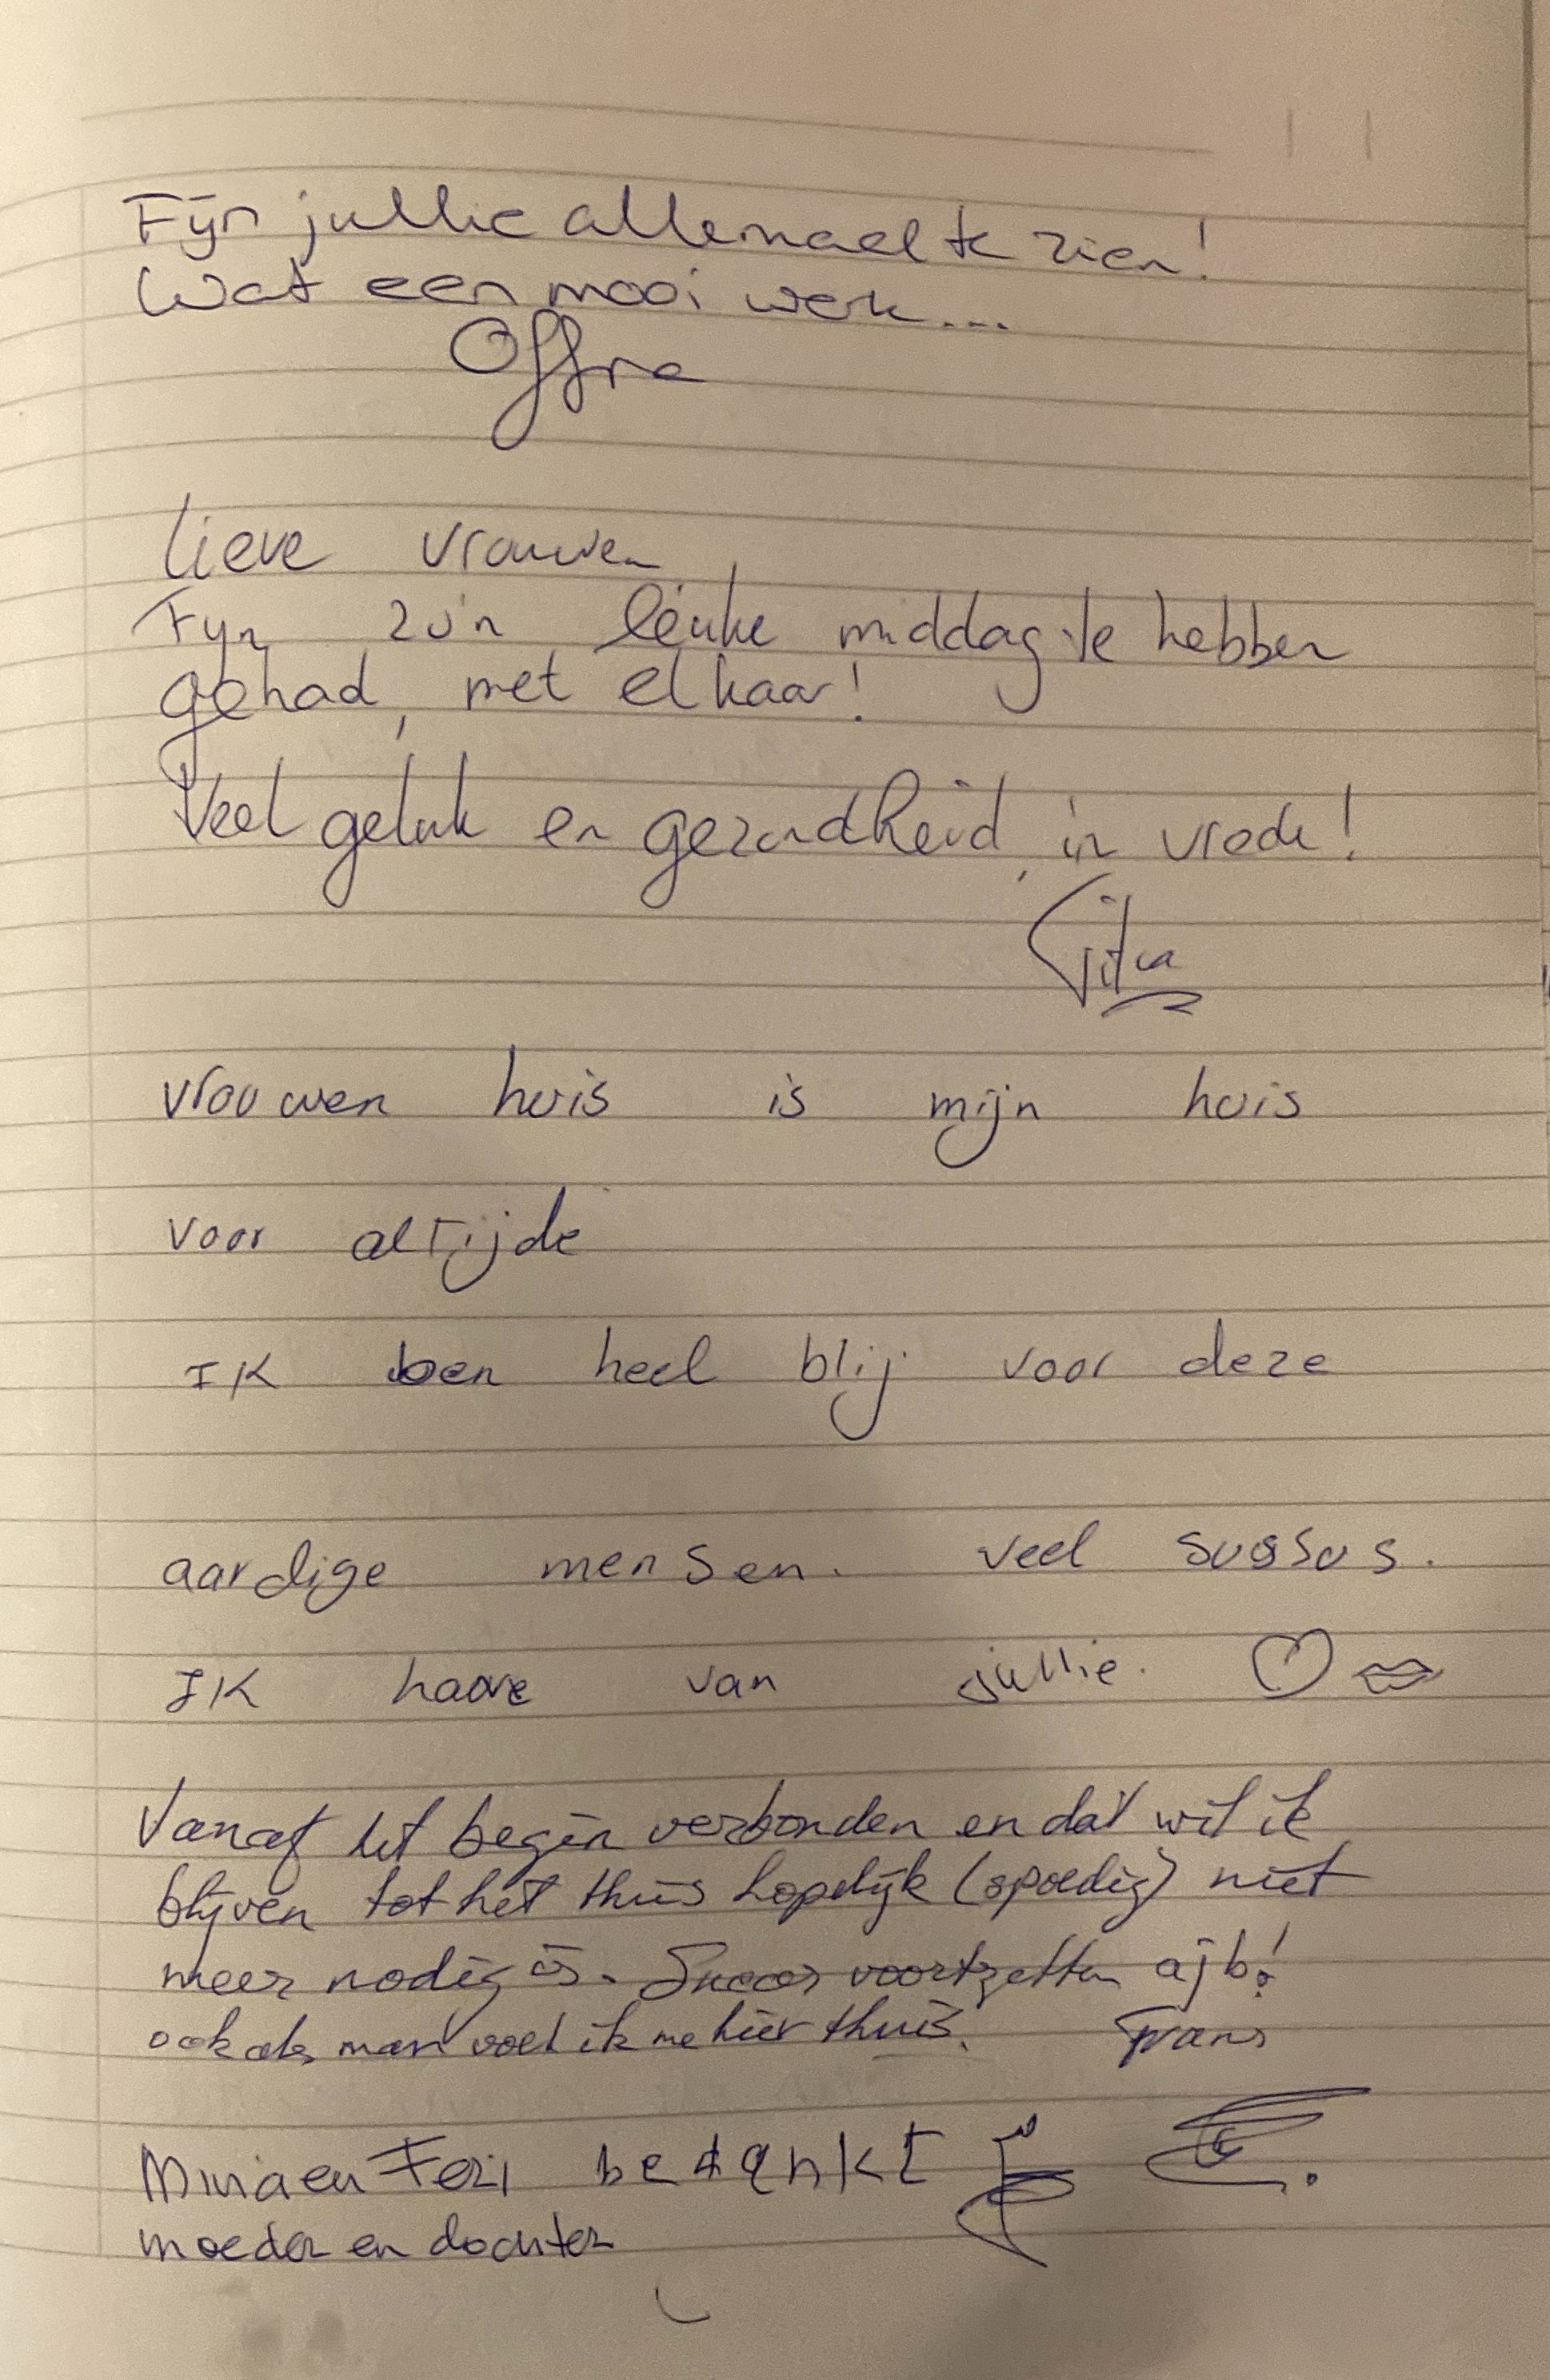 Fijn jullie allemaal te zien!
Wat een mooi werk...
Offra
Lieve vrouwen
Fyn zo'n leuke middag te hebben
gehad, met elkaar!
Veel geluk en gezondheid, in vrede!
vrouwen huis is mijn huis
voor altijde
IK ben heel blij voor deze
aardige mensen. veel sussus.
IK haove van jullie.
Vanaf het begin verbonden en dat wil ik
blijven tot het thuis hopelijk (spoedig) niet
meer nodig is. Succes voortzetten ajb!
ook als man voel ik me hier thuis. Frans
en Feri bedankt
moeder en dochter